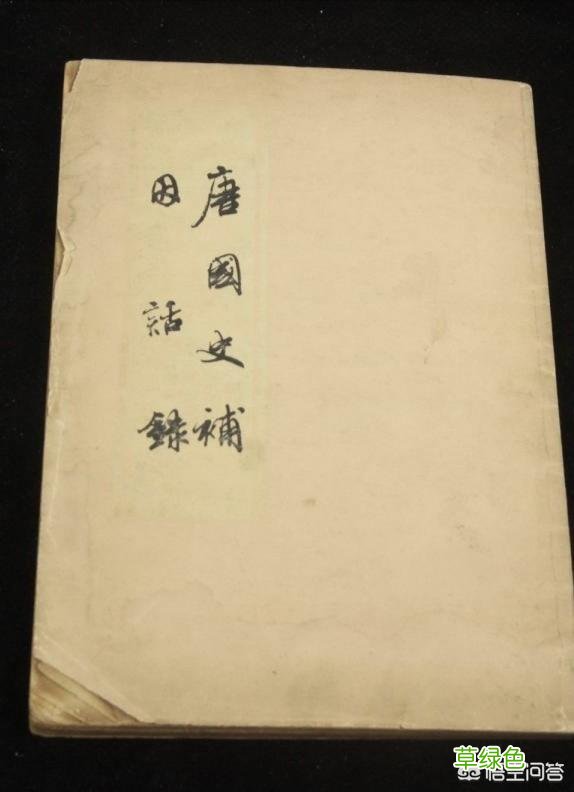 唐國史補
因話錄
草绿色
悟空问答